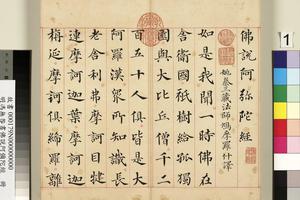 佛說阿彌陀經
姚秦三藏法師鳩摩羅什譯
如是我聞一時佛在
舍衛國祇樹給孤獨
園與大比丘僧千二
百五十人俱皆是大
阿羅漢衆所知識長
老舍利弗摩訶目犍
連摩訶迦葉摩訶迦
栴延摩訶俱絺羅離
1